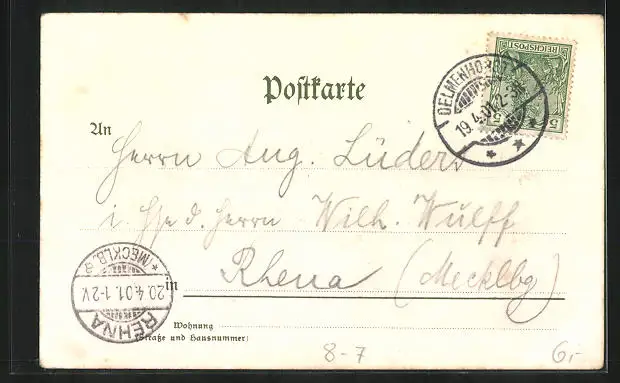 Postkarte
REICHSPOST
5 5
DELMENHORST
19.4.01.2-3N
* *
An
Herrn Aug. Lüders
i. Hse d. Herrn Wilh. Wulff
in Rhena (Mecklbg)
* MECKLB. a
20.4.01.1-2V.
REHNA
Wohnung
(Straße und Hausnummer)
8-7
6,-